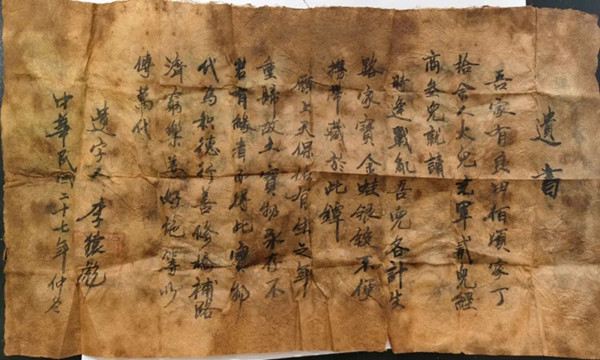 遺書
吾家有良田佰頃家丁
拾余人大兒求軍貳兒經
商叁兒就讀
時逢戰亂吾兒各計生
路家寶金蛙銀錠不便
携帶藏於此罈
願上天保佑有生之年
重歸故土寶物永存不
若有緣者而得此寶物
代為积德行善修橋補路
濟貧樂善好施等以
傳萬代
遺字人 李振彪
中華民國二十七年仲冬